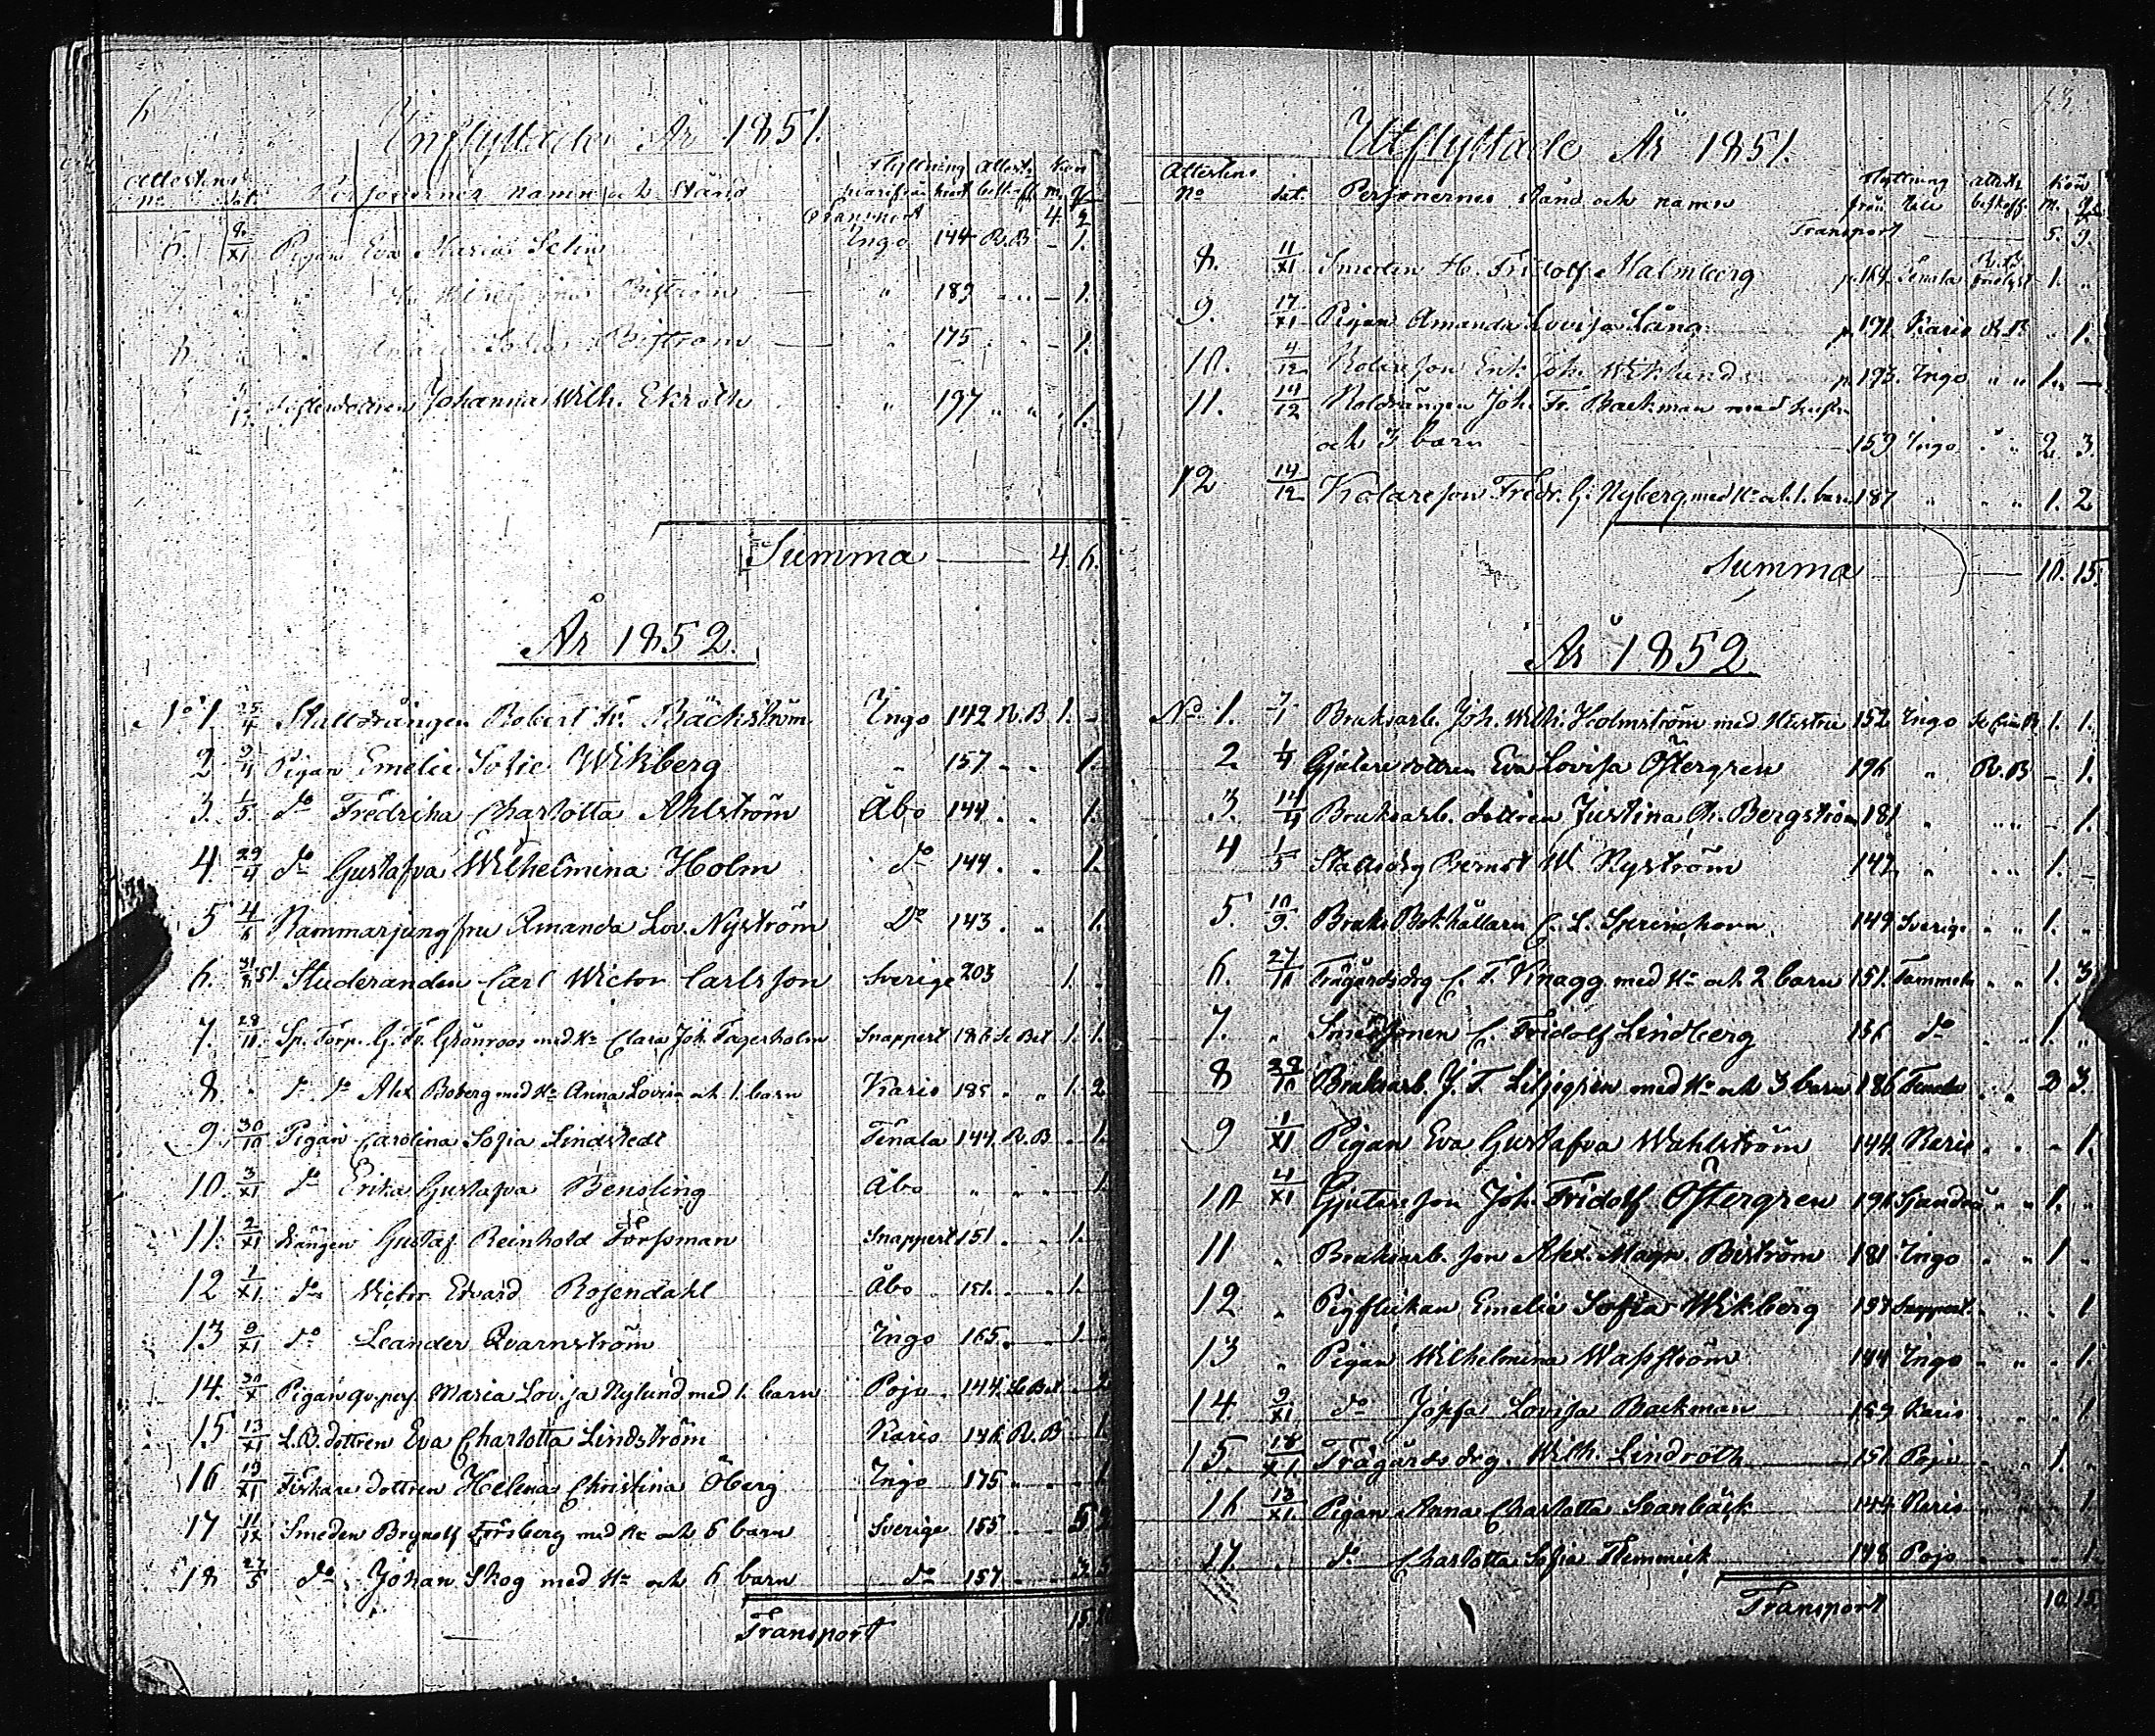 Inflyttade År 1851.
Attestens Personernes namn och Stånd Flyttning Attest. Kön
No dat. hvarifrån hvart beskaff. m. q.
Transport 4. 2
6. 9/XI Pigan Eva Maria Selin Ingo 144 R.B - 1.
Biström " 189 " " - 1.
Sofia Biström " 175 " - 1.
dottren Johanna Wilh. Ekroth " 197 " " 1.
Summa 4. 6.
År 1852.
No 1. 25/4 Stalldrängen Robert Fr. Bäckström Ingo 142 R.B 1. -
2 2/4 Pigan Emelie Sofie Wikberg " 157 " " 1.
3. 1/5 do Fredrika Charlotta Ahlström Åbo 144 " " 1.
4. 29/4 do Gustafva Wilhelmina Holm do 144 " " 1.
5 4/6 Kammarjungfru Amanda Lov. Nyström Do 143 " " 1.
6. Studeranden Carl Wictor Carlsson Sverige 203 1. "
7. 28/10 Sp. Torp. G. Fr. Grönroos med Ha Clara Joh. Fagerholm Snappert 186 Se Bet 1. 1.
8 " do do Alex Boberg med Ha Anna Lovisa och 1. barn Karis 185 " " 1. 2
9 30/10 Pigan Carolina Sofia Lindstedt Tenala 144 R.B 1.
10. 3/XI do Erika Gustafva Bensling Åbo " " " 1.
11. 2/XI Drängen Gustaf Reinhold Forssman Snappert 151 " " 1.
12 1/XI do Victor Edvard Rosendahl Åbo 151. " 1.
13 9/XI do Leander Qvarnström Ingo 165 " " 1.
14. 30/X Pigan qv. pers. Maria Lovisa Nylund med 1. barn Pojo 144. Se Bet 2
15 13/XI L.B. dottren Eva Charlotta Lindström Karis 146. R.B 1.
16 19/XI Fiskare dottren Helena Christina Öberg Ingo 175 " " 1
17 11/IX Smeden Brynolf Forsberg med Ha och 5 barn Sverige 155 " " 5 2
18 27/5 do Johan Skog med Ha och 6 barn do 157 " " 3. 5
Transport 15.
Utflyttade År 1851.
Attestens Personernes stånd och namn Flyttning Attests Kön
No dat. från till beskaff. m. q.
Transport 5. 9.
8. 11/XI Smeden H. Fridolf Malmberg p. 154 Tenala R.B. 1. "
9. 17/XI Pigan Amanda Lovisa Lång p. 171 Karis R.B. " 1.
10. 4/12 Kolareson Erik Joh. Wiklund p. 193. Ingo " " 1. -
11. 14/12 Koldrängen Joh. Fr. Backman med hustru
och 3 barn 159 Ingo " " 2. 3.
12 14/12 Kolareson Fredr. G. Nyberg med Ha och 1. barn 187 " " " 1. 2
Summa 10. 15.
År 1852
No 1. 7/1 Bruksarb. Joh. Wilh. Holmström med Hustru 152 Ingo 1. 1.
2 1/4 Gjutere dottren Eva Lovisa Östergren 196 " R.B - 1.
3. 14/4 Bruksarb. dottren Justina Ch. Bergström 181 " " " - 1.
4 1/5 Stalldrg Bernst W Nyström 147 " " " 1. -
5. 10/9. Bruks Bokhållaren C. L. Sprinchorn 149 Sverige " " 1. "
6. 27/10 Trägårdsdrg C. F. Knagg med Ha och 2 barn 151. Tammela " " 1. 3
7. " Smedsonen C. Fridolf Lindberg 156 do " " 1. "
8 29/10 Bruksarb. J. F. Liljegren med Ha och 3 barn 186 Tenala " " 2 3.
9 1/XI Pigan Eva Gustafva Wahlström 144 Karis " " " 1.
10 4/XI Gjutareson Joh. Fridolf Östergren 196 " " 1. "
11 " Bruksarb. son Alex. Magn. Biström 181 Ingo " " 1 "
12 " Pigflickan Emelie Sofia Wikberg 157 Snappert " " " 1
13 " Pigan Wilhelmina Wasström 144 Ingo " " " 1.
14. 9/XI do Josefa Lovisa Backman 159 Karis " " " 1
15. 18/XI Trägårdsdrg. Wilh. Lindroth 151 Pojo " " 1. "
16 13/XI Pigan Anna Charlotta Svanbäck 144 Karis " " 1.
17. " do Charlotta Sofia Flemmich 148 Pojo " " 1.
Transport 10. 15